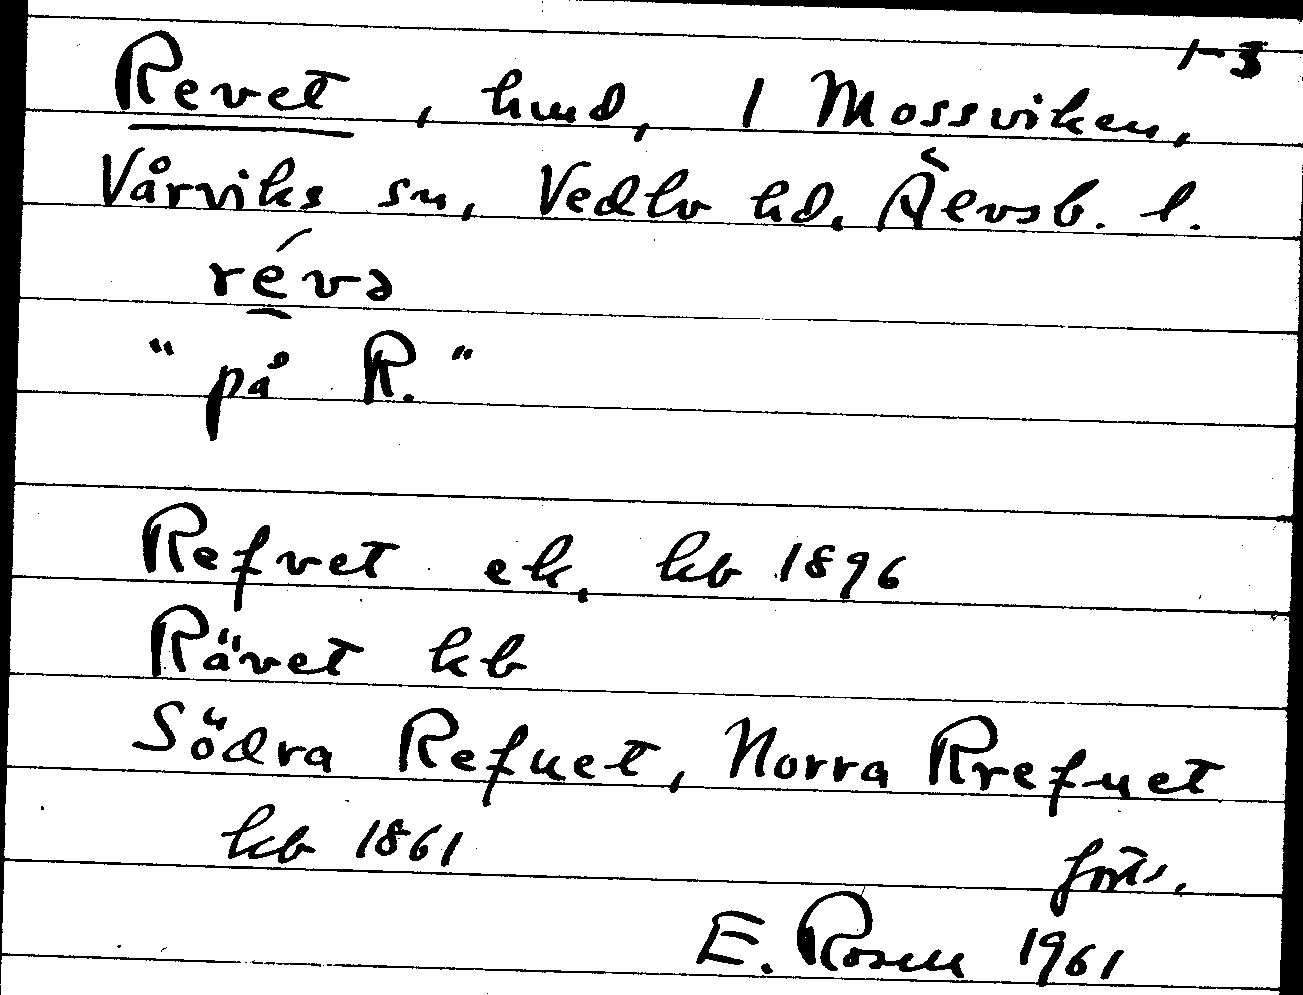 1-3
Revet, hmd, 1 Mossviken,
Vårviks sn, Vedbo hd. Älvsb. l.
révə
"på R."
Refvet ek. kb 1896
Rävet kb
Södra Refuet, Norra Rrefuet
kb 1861
forts.
E. Rosen 1961